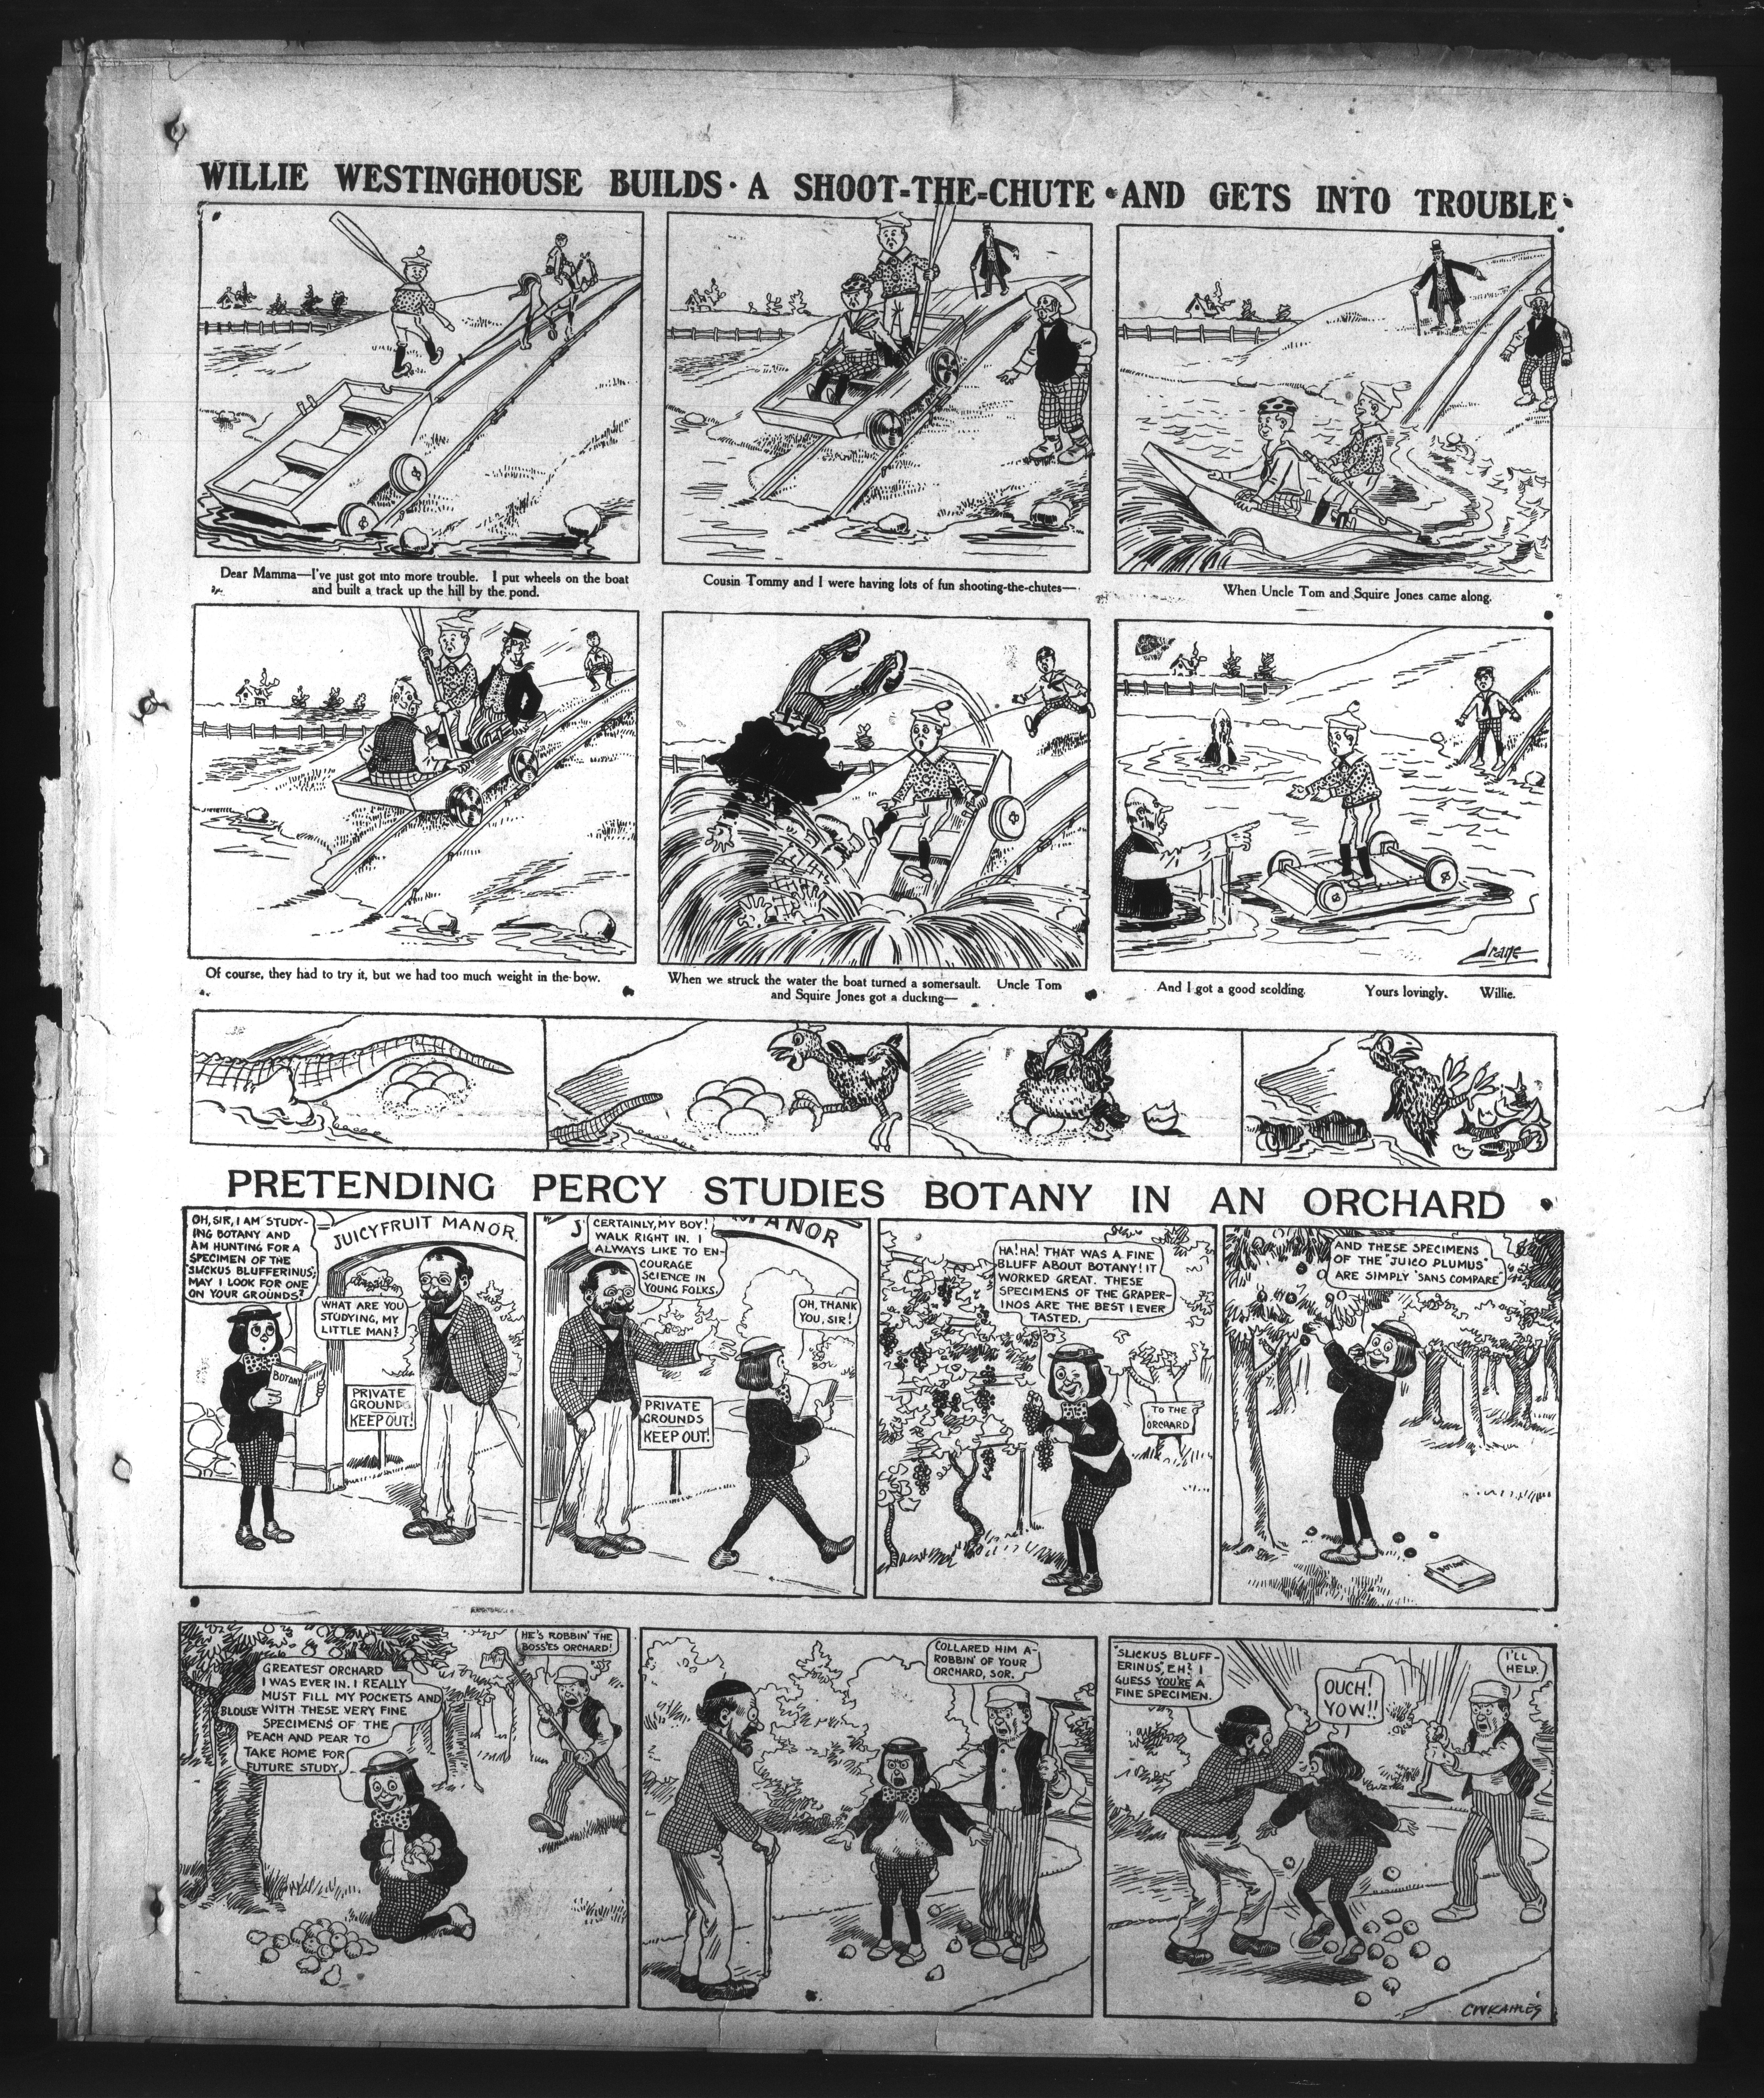 WILLIE WESTINGHOUSE BUILDS · A SHOOT-THE-CHUTE · AND GETS INTO TROUBLE
Dear Mamma—I've just got into more trouble. I put wheels on the boat
and built a track up the hill by the pond.
Cousin Tommy and I were having lots of fun shooting-the-chutes—
When Uncle Tom and Squire Jones came along.
Of course, they had to try it, but we had too much weight in the bow.
When we struck the water the boat turned a somersault. Uncle Tom
and Squire Jones got a ducking—
Crane
And I got a good scolding. Yours lovingly. Willie.
PRETENDING PERCY STUDIES BOTANY IN AN ORCHARD
OH, SIR, I AM STUDY-
ING BOTANY AND
AM HUNTING FOR A
SPECIMEN OF THE
"SLICKUS BLUFFERINUS",
MAY I LOOK FOR ONE
ON YOUR GROUNDS?
JUICYFRUIT MANOR.
WHAT ARE YOU
STUDYING, MY
LITTLE MAN?
BOTANY
PRIVATE
GROUNDS
KEEP OUT!
CERTAINLY, MY BOY!
WALK RIGHT IN. I
ALWAYS LIKE TO EN-
COURAGE
SCIENCE IN
YOUNG FOLKS.
J MANOR
OH, THANK
YOU, SIR!
PRIVATE
GROUNDS
KEEP OUT!
HA! HA! THAT WAS A FINE
BLUFF ABOUT BOTANY! IT
WORKED GREAT. THESE
SPECIMENS OF THE GRAPER-
INOS ARE THE BEST I EVER
TASTED.
TO THE
ORCHARD
AND THESE SPECIMENS
OF THE "JUICO PLUMUS"
ARE SIMPLY "SANS COMPARE"
BOTANY
GREATEST ORCHARD
I WAS EVER IN. I REALLY
MUST FILL MY POCKETS AND
BLOUSE WITH THESE VERY FINE
SPECIMENS OF THE
PEACH AND PEAR TO
TAKE HOME FOR
FUTURE STUDY.
HE'S ROBBIN' THE
BOSS'ES ORCHARD!
COLLARED HIM A-
ROBBIN' OF YOUR
ORCHARD, SOR.
"SLICKUS BLUFF-
ERINUS", EH! I
GUESS YOU'RE A
FINE SPECIMEN.
OUCH!
YOW!!
I'LL
HELP.
CW KAHLES